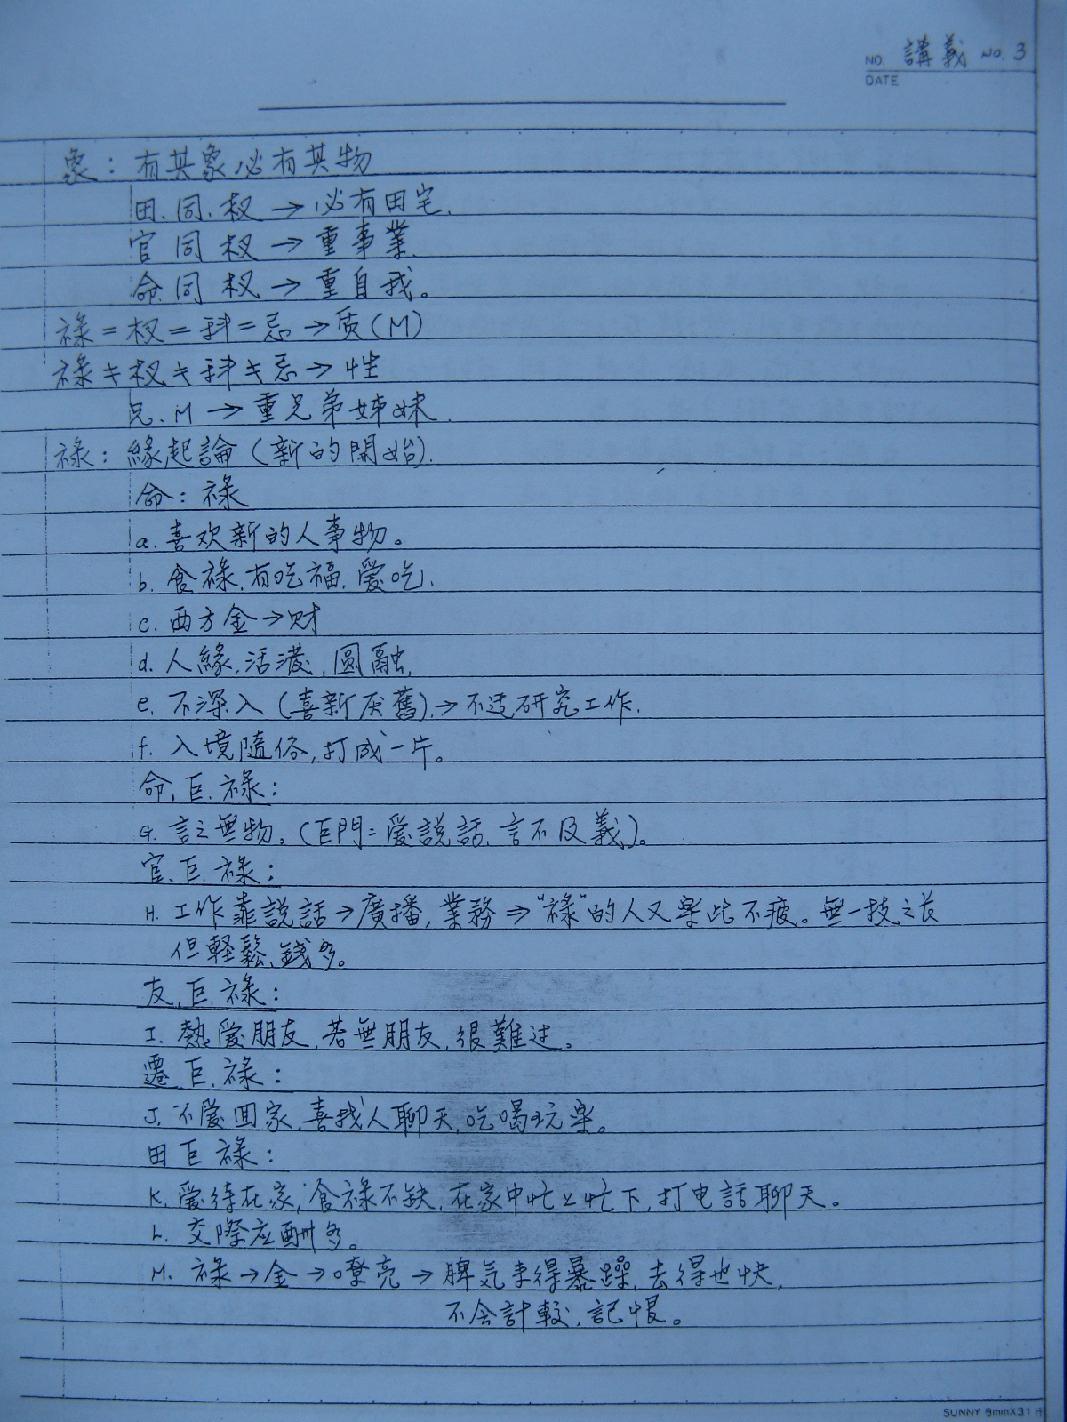 NO. 講義 NO. 3
DATE
象：有其象必有其物
田.同.权→必有田宅.
官同权→重事業.
命同权→重自我。
祿=权=科=忌→质(M)
祿≠权≠科≠忌→性
兄.M→重兄弟姊妹.
祿：緣起論(新的開始).
命：祿
a.喜欢新的人事物。
b.食祿.有吃福.愛吃.
c.西方金→财
d.人緣.活潑.圓融.
e.不深入(喜新厌舊).→不适研究工作.
f.入境隨俗,打成一片。
命,巨.祿：
G.言之無物。(巨門=愛說話.言不及義)。
官.巨.祿：
H.工作靠説話→廣播,業務→"祿"的人又樂此不疲。無一技之长
但軽鬆,錢多。
友,巨祿：
I.熱愛朋友,若無朋友,很難过。
遷.巨.祿：
J.不愛回家,喜找人聊天,吃喝玩樂。
田巨祿：
K.愛待在家,食祿不缺,在家中忙上忙下,打电話聊天。
L.交際应酬多。
M.祿→金→嘹亮→脾气来得暴躁,去得也快,
不会計較,記恨。
SUNNY 9mmX31行